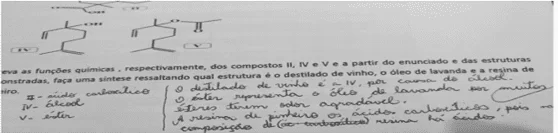 OH
IV
V
eva as funções químicas , respectivamente, dos compostos II, IV e V e a partir do enunciado e das estruturas
onstradas, faça uma síntese ressaltando qual estrutura é o destilado de vinho, o óleo de lavanda e a resina de
iro.
II - ácido carboxílico
IV - álcool
V - éster
O destilado de vinho é a IV, por causa do álcool.
O éster representa o óleo de lavanda por muitos
ésteres terem odor agradável.
A resina de pinheiro os ácidos carboxílicos, pois na
composição de resina há ácidos.